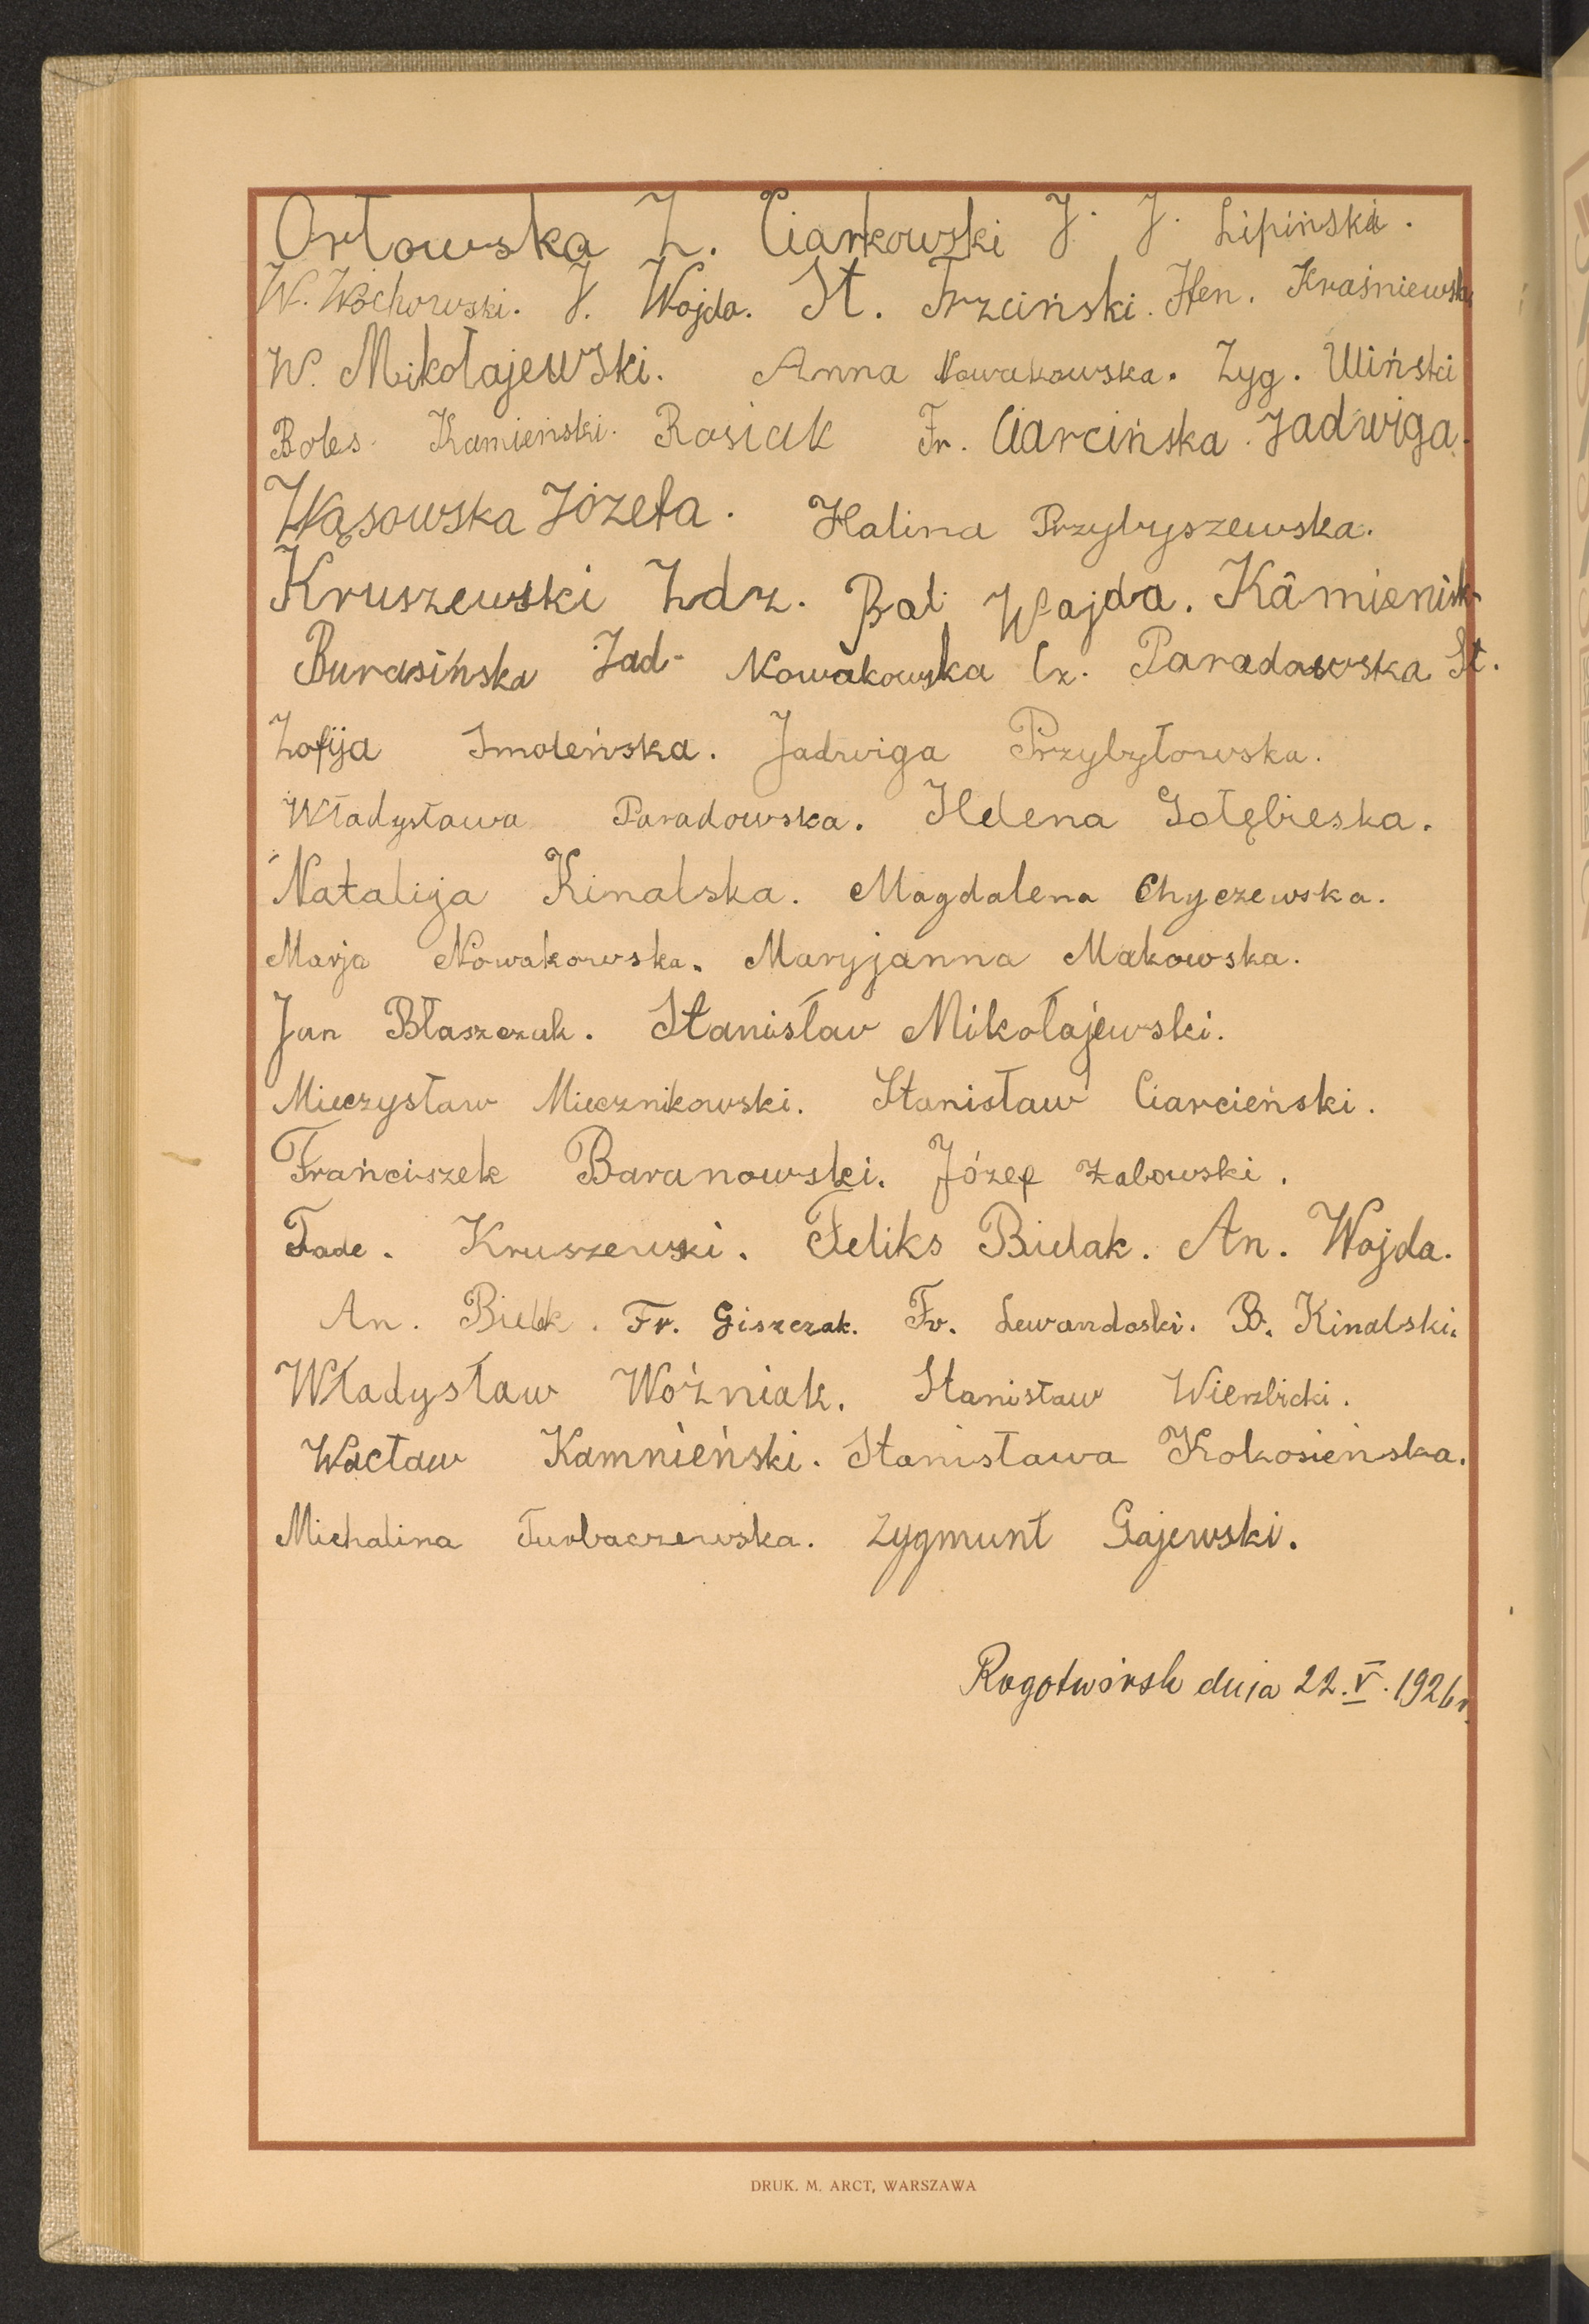 Orłowska Z. Ciarkowski J. J. Lipiński.
W. Wochowski. J. Wojda. St. Trzciński. Hen. Kraśniewsk
W. Mikołajewski. Anna Nowakowska. Zyg. Uliński
Boles. Kamieński. Rosiak Fr. Ciarcińska Jadwiga.
Wąsowska Józefa. Halina Przybyszewska.
Kruszewski Zdz. Bol. Wojda. Kamienisk
Burasińska Jad. Nowakowska Cz. Paradowska St.
Zofija Smoleńska. Jadwiga Przybyłowska.
Władysława Paradowska. Helena Gołębieska.
Natalija Kinalska. Magdalena Chyczewska.
Marja Nowakowska. Maryjanna Makowska.
Jan Błaszczak. Stanisław Mikołajewski.
Mieczysław Miecznikowski. Stanisław Ciarcieński.
Frańciszek Baranowski. Józef Żabowski.
Tade. Kruszewski. Feliks Bielak. An. Wojda.
An. Fr. Giszczak. Fr. Lewandoski. B. Kinalski.
Władysław Woźniak. Stanisław Wierzbicki.
Wacław Kamnieński. Stanisława Kokosieńska.
Michalina Turbaczewska. Zygmunt Gajewski.
Rogotwórsk dnia 22.V.1926 r.
DRUK. M. ARCT, WARSZAWA